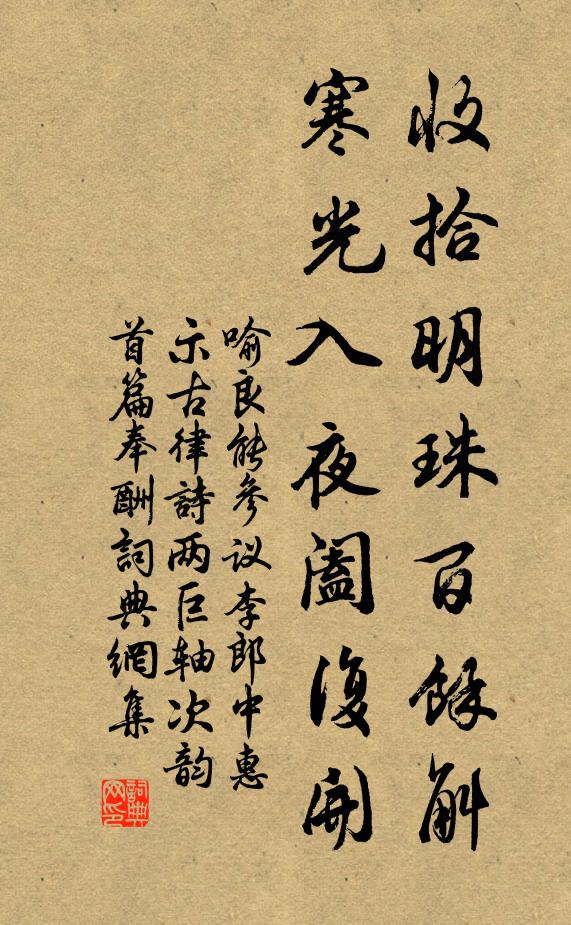 收拾明珠百餘斛
寒光入夜阖復開
喻良能參议李郎中惠
示古律詩两巨轴次韵
首篇奉酬詞典網集
詞典
网印